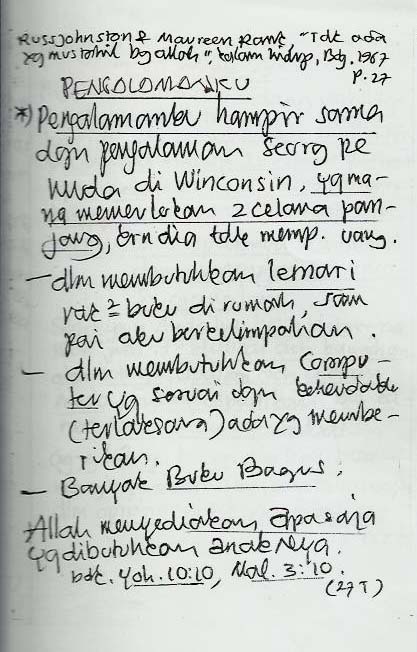 Russjohnston & Maureen Rank, "Tdk ada
yg mustahil bg allah", kalam hidup, Bdg, 1987
P. 27
PENGALAMANKU
*) Pengalamanku hampir sama
dgn pengalaman seorg pe
muda di Winconsin, yg ma-
na memerlukan 2 celana pan-
jang, krn dia tdk memp. uang.
- dlm membutuhkan lemari
rak² buku di rumah, sam
pai aku berkelimpahan.
- dlm membutuhkan Compu-
ter yg sesuai dgn
(terlaksana) ada yg membe-
rikan.
- Banyak Buku Bagus.
Allah menyediakan apa saja
yg dibutuhkan anakNya.
bdk. Yoh. 10:10, Mal. 3:10.
(27 T)